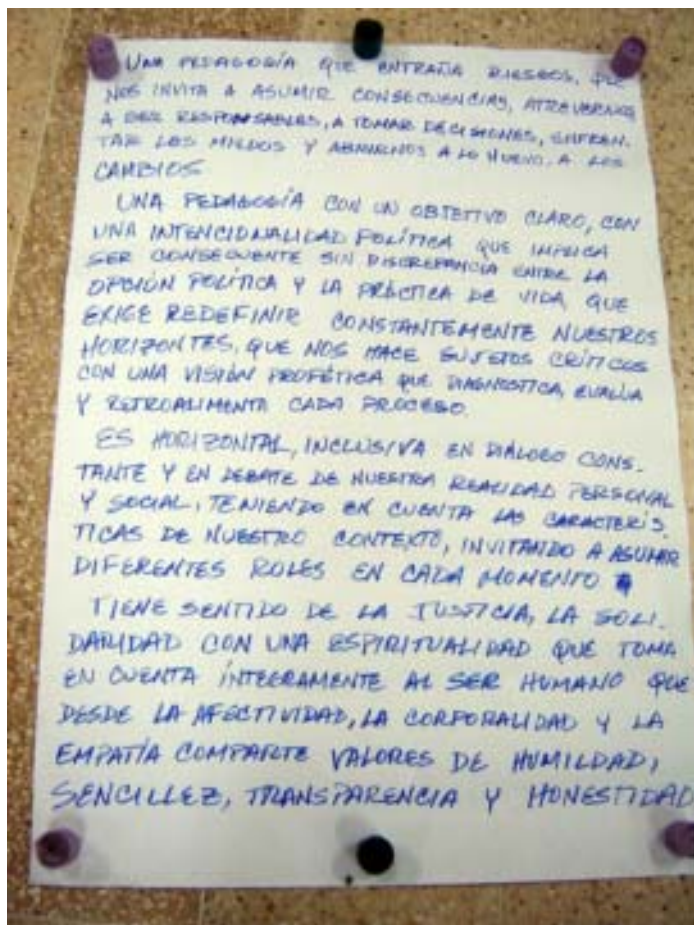 UNA PEDAGOGÍA QUE ENTRAÑA RIESGOS, QUE
NOS INVITA A ASUMIR CONSECUENCIAS, ATREVERNOS
A SER RESPONSABLES, A TOMAR DECISIONES, ENFREN-
TAR LOS MIEDOS Y ABRIRNOS A LO NUEVO, A LOS
CAMBIOS
UNA PEDAGOGÍA CON UN OBJETIVO CLARO, CON
UNA INTENCIONALIDAD POLÍTICA QUE IMPLICA
SER CONSECUENTE SIN DISCREPANCIA ENTRE LA
OPCIÓN POLÍTICA Y LA PRÁCTICA DE VIDA, QUE
EXIGE REDEFINIR CONSTANTEMENTE NUESTROS
HORIZONTES, QUE NOS HACE SUJETOS CRÍTICOS
CON UNA VISIÓN PROFÉTICA QUE DIAGNOSTICA, EVALÚA
Y RETROALIMENTA CADA PROCESO.
ES HORIZONTAL, INCLUSIVA EN DIÁLOGO CONS-
TANTE Y EN DEBATE DE NUESTRA REALIDAD PERSONAL
Y SOCIAL, TENIENDO EN CUENTA LAS CARACTERÍS-
TICAS DE NUESTRO CONTEXTO, INVITANDO A ASUMIR
DIFERENTES ROLES EN CADA MOMENTO
TIENE SENTIDO DE LA JUSTICIA, LA SOLI-
DARIDAD CON UNA ESPIRITUALIDAD QUE TOMA
EN CUENTA ÍNTEGRAMENTE AL SER HUMANO QUE
DESDE LA AFECTIVIDAD, LA CORPORALIDAD Y LA
EMPATÍA COMPARTE VALORES DE HUMILDAD,
SENCILLEZ, TRANSPARENCIA Y HONESTIDAD